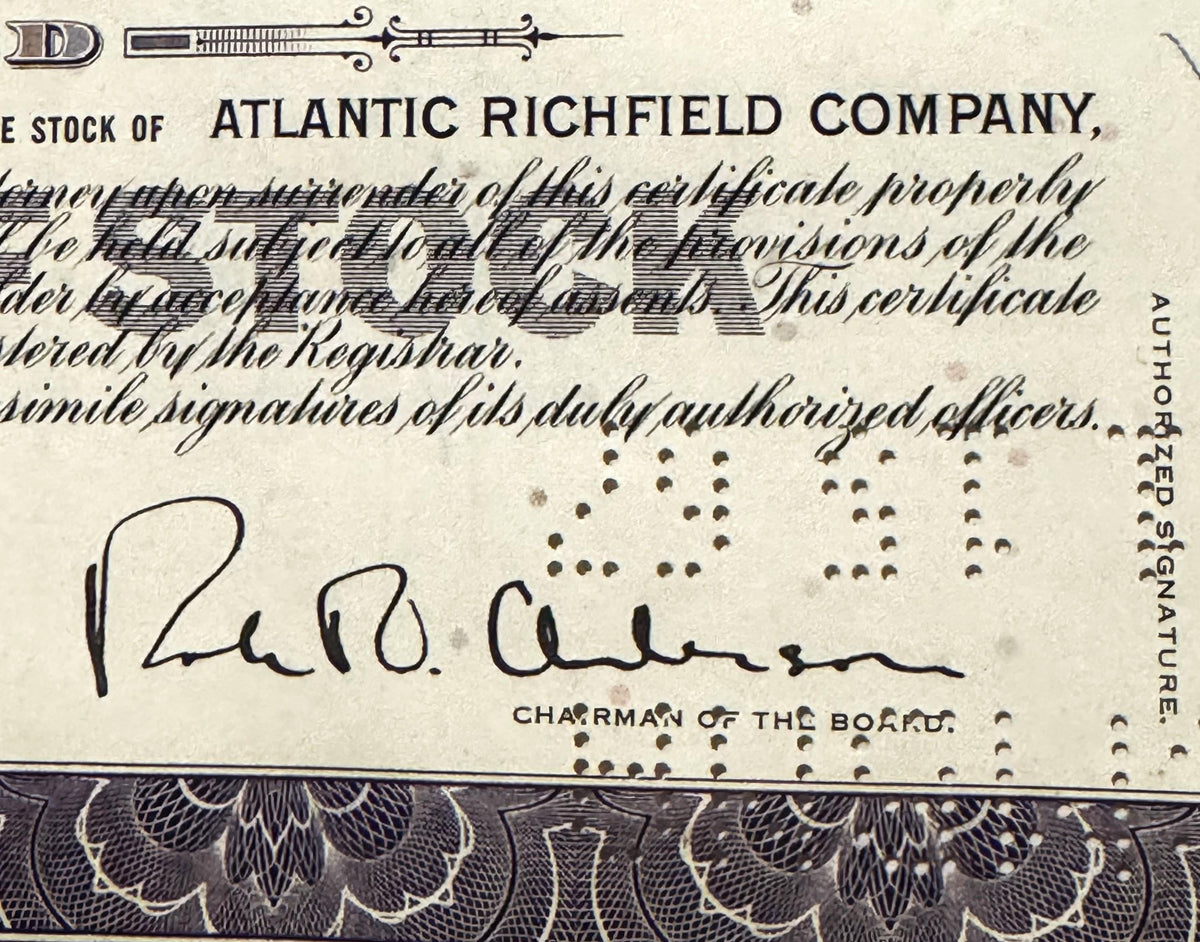 D
E STOCK OF ATLANTIC RICHFIELD COMPANY,
STOCK
torney upon surrender of this certificate properly
be held subject to all of the provisions of the
der by acceptance hereof assents. This certificate
stered by the Registrar.
simile signatures of its duly authorized officers.
AUTHORIZED SIGNATURE.
CHAIRMAN OF THE BOARD.